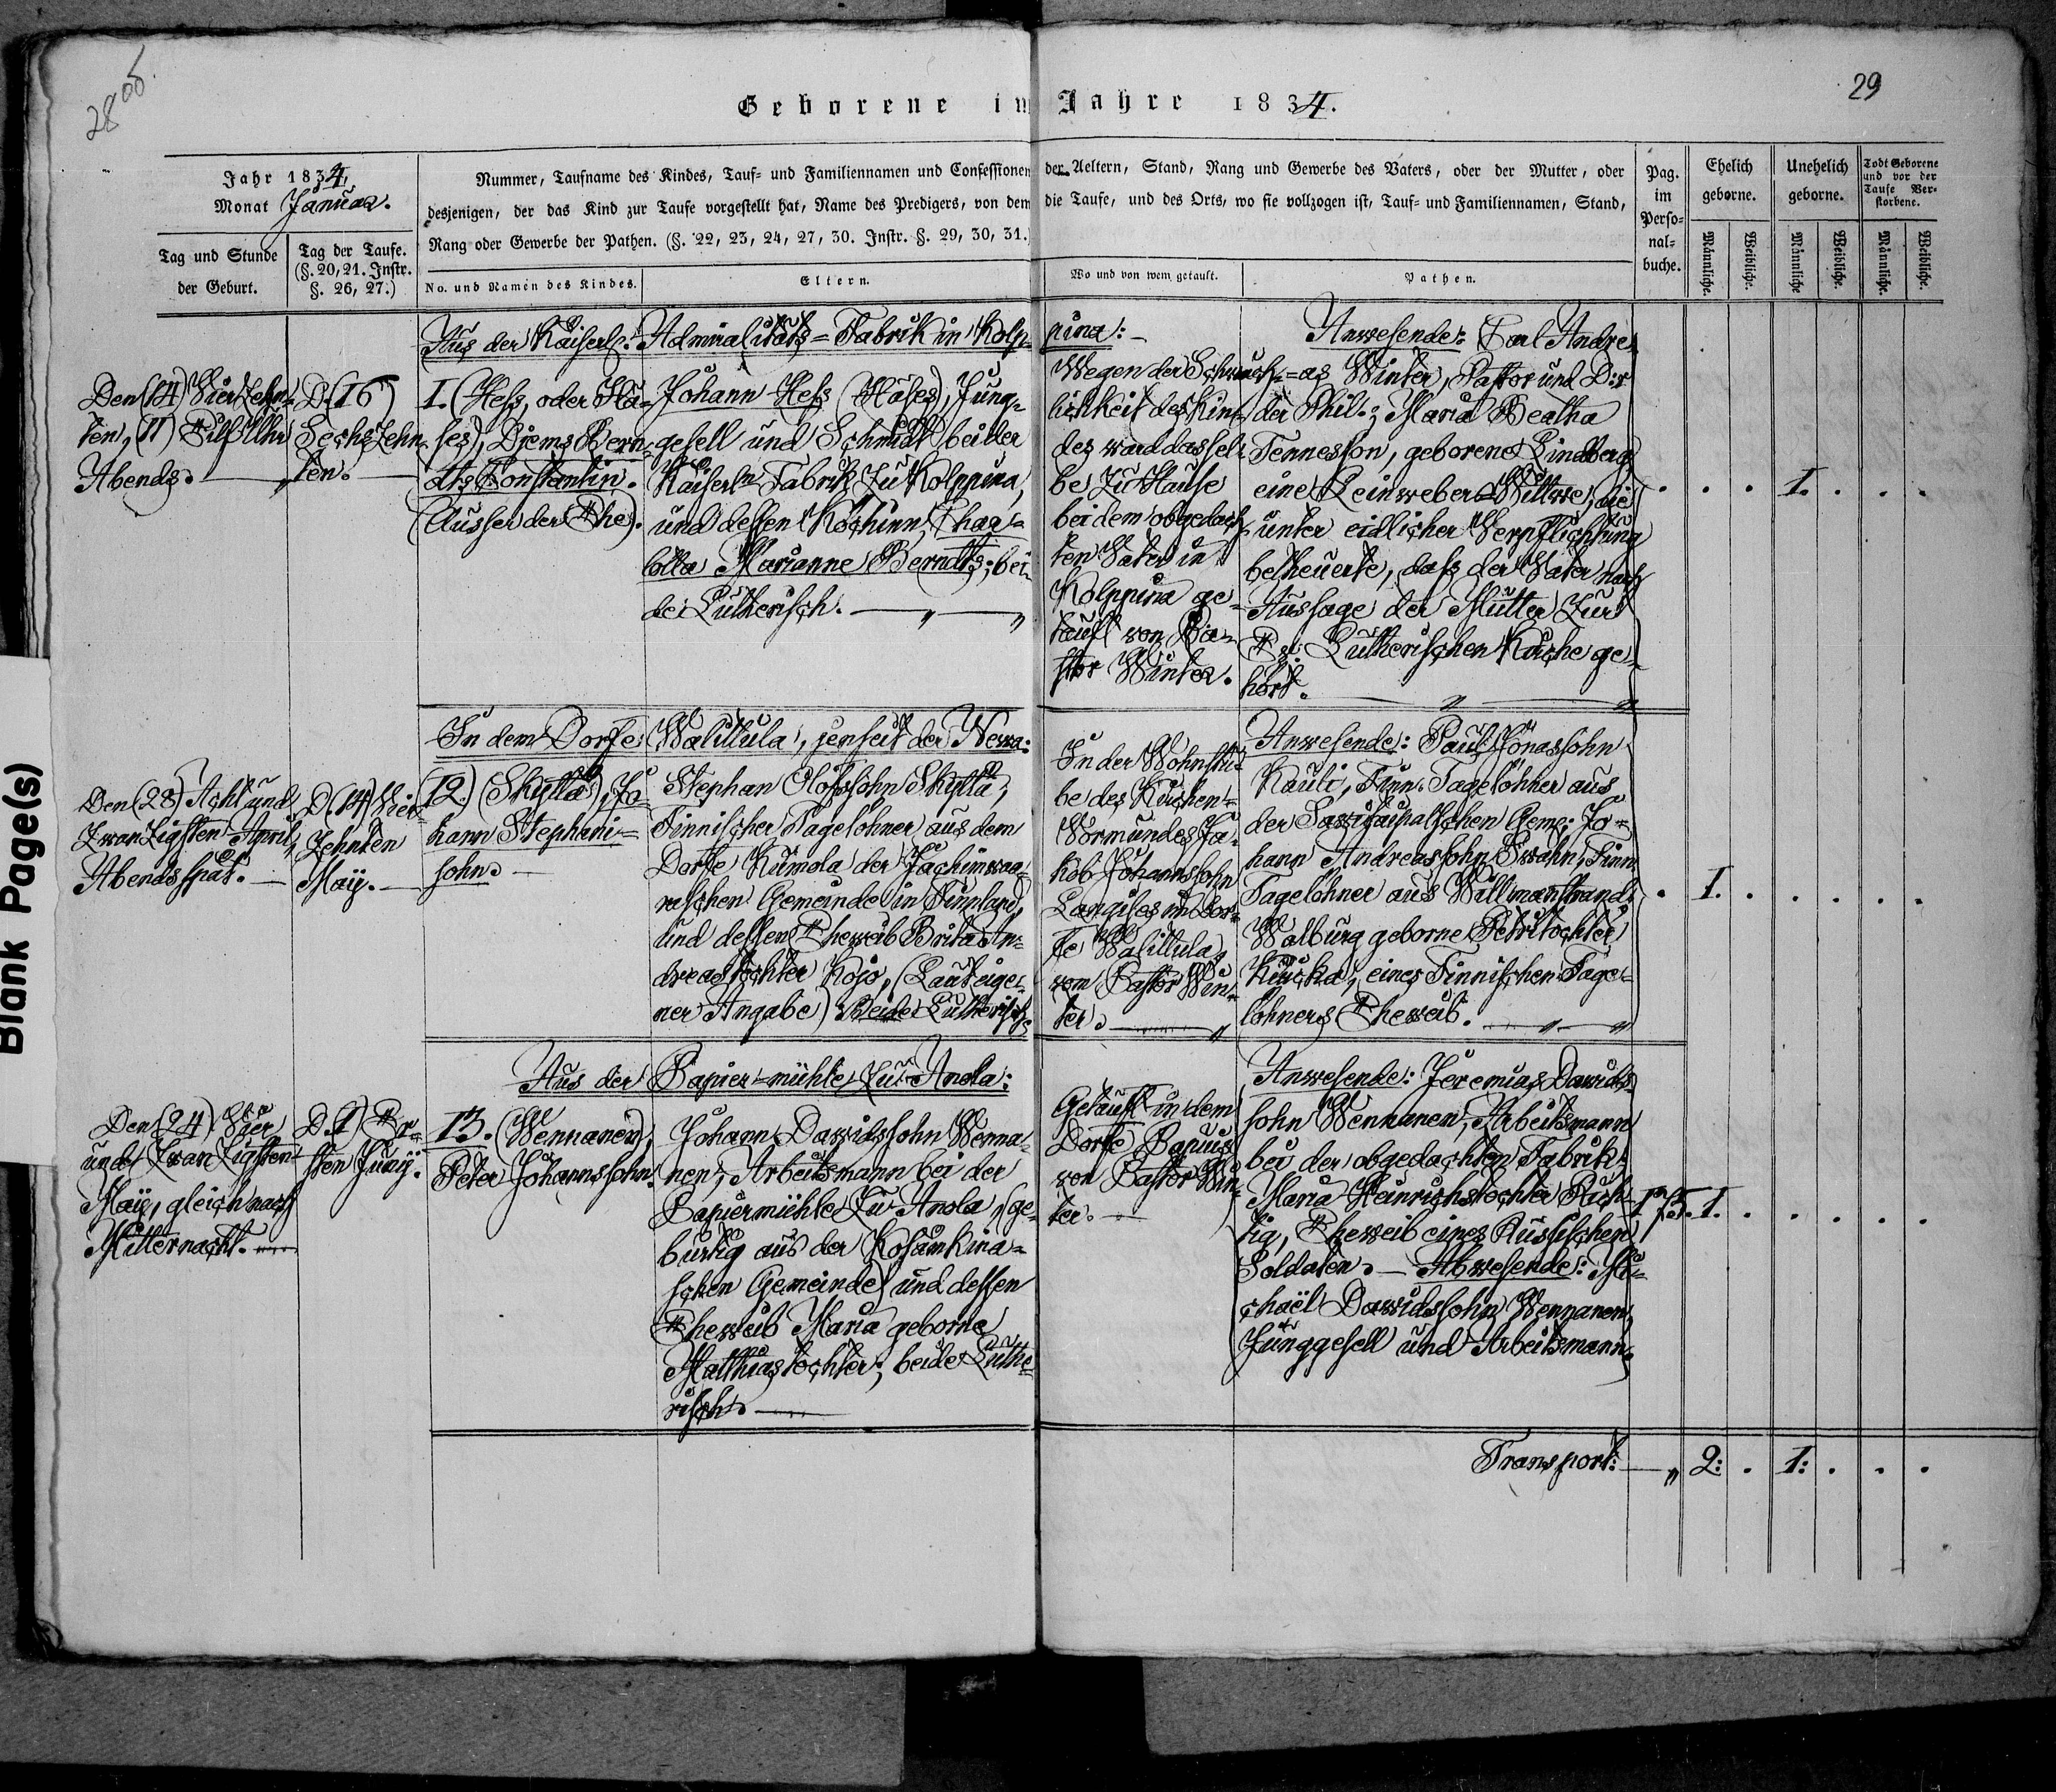 2806.
29
Geborene im Jahre 1834.
Jahr 1834,
Monat Januar.
Tag und Stunde
der Geburt.
Tag der Taufe.
(§. 20, 21. Instr.
§. 26, 27.)
Nummer, Taufname des Kindes, Tauf- und Familiennamen und Confessionen der Aeltern, Stand, Rang und Gewerbe des Vaters, oder der Mutter, oder
desjenigen, der das Kind zur Taufe vorgestellt hat, Name des Predigers, von dem die Taufe, und des Orts, wo sie vollzogen ist, Tauf- und Familiennamen, Stand,
Rang oder Gewerbe der Pathen. (§. 22, 23, 24, 27, 30. Instr. §. 29, 30, 31.)
No. und Namen des Kindes.
Eltern.
Wo und von wem getauft.
Pathen.
Pag.
im
Perso-
nal-
buche.
Ehelich
geborne.
Unehelich
geborne.
Todt Geborene
und vor der
Taufe Ver-
storbene.
Männliche.
Weibliche.
Männliche
Weibliche.
Männliche.
Weibliche.
Aus der Kaiserl: Admiralitäts=Fabrik in Kolp-
pina:
Den (14) Vierzehn-
ten, (11) Eilf Uhr
Abends.
D. (16)
Sechszehn-
ten.
1. (Hess, oder Hä-
ses), Djems Bern-
dts Konstantin.
(Ausser der Ehe).
Johann Hess (Häses), Jung-
gesell und Schmidt bei der
Kaiserln Fabrik zu Kolppina,
und dessen Köchinn, Char-
lotta Marianne Berndts; bei-
de Lutherisch.
Wegen der Schwäch-
lichkeit des Kin-
des ward dassel-
be zu Hause
bei dem obgedach-
ten Vater in
Kolppina ge-
tauft von Pa-
stor Winter.
Anwesende: Carl Andre-
as Winter, Pastor und D:r
der Phil.; Maria Beatha
Tennesson, geborene Lindberg,
eine Leinweber-Wittwe, die
unter eidlicher Verpflichtung
betheuerte, dass der Vater nach
Aussage der Mutter zur
Ev: Lutherischen Kirche ge-
hört.
1.
In dem Dorfe Walittula, jenseit der Newa:
Den (28) Acht und
zwanzigsten April,
Abends spät.
D. (14) Vier-
zehnten
Maÿ.
12. (Skyttä), Jo-
hann Stephani-
sohn.
Stephan Olofssohn Skyttä,
Finnischer Tagelöhner aus dem
Dorfe Kumola der Jachimwaa-
raschen Gemeinde in Finnland,
und dessen Eheweib Brita An-
dreastochter Kojo, (Laut eige-
ner Angabe) Beide Lutherisch.
In der Wohnstu-
be des Kirchen-
Vormundes Ja-
kob Johannssohn
im Dor-
fe Walittula,
vom Pastor Win-
ter.
Anwesende: Paul Jonassohn
Kauti, Finn. Tagelöhner aus
der Sawitaipalschen Gem.; Jo-
hann Andreassohn Swahn, Finn.
Tagelöhner aus Willmanstrand;
Walburg geborne Petritochter
eines Finnischen Tage-
löhners Eheweib.
1.
Aus der Papier=mühle zu Anola:
Den (24) Vier
und zwanzigsten
Maÿ, gleich nach
Mitternacht.
D. 1) Er-
sten Junÿ.
13. (Wennanen),
Peter Johannssohn.
Johann Dawidssohn Wenna-
nen, Arbeitsmann bei der
Papiermühle zu Anola, (ge-
bürtig aus der Kosamkina-
schen Gemeinde) und dessen
Eheweib Maria geborne
Matthiastochter; beide Luthe-
risch.
Getauft in dem
Dorfe Papius
von Pastor Win-
ter.
Anwesende: Jeremias Dawids-
sohn Wennanen, Arbeitsmann
bei der obgedachten Fabrik;
Maria Heinrichstochter Rich-
tig, Eheweib eines Russischen
Soldaten. Abwesende: Mi-
chaël Dawidssohn Wennanen,
Junggesell und Arbeitsmann.
1.
Transport: 2: . 1: . . .
Blank Page(s)